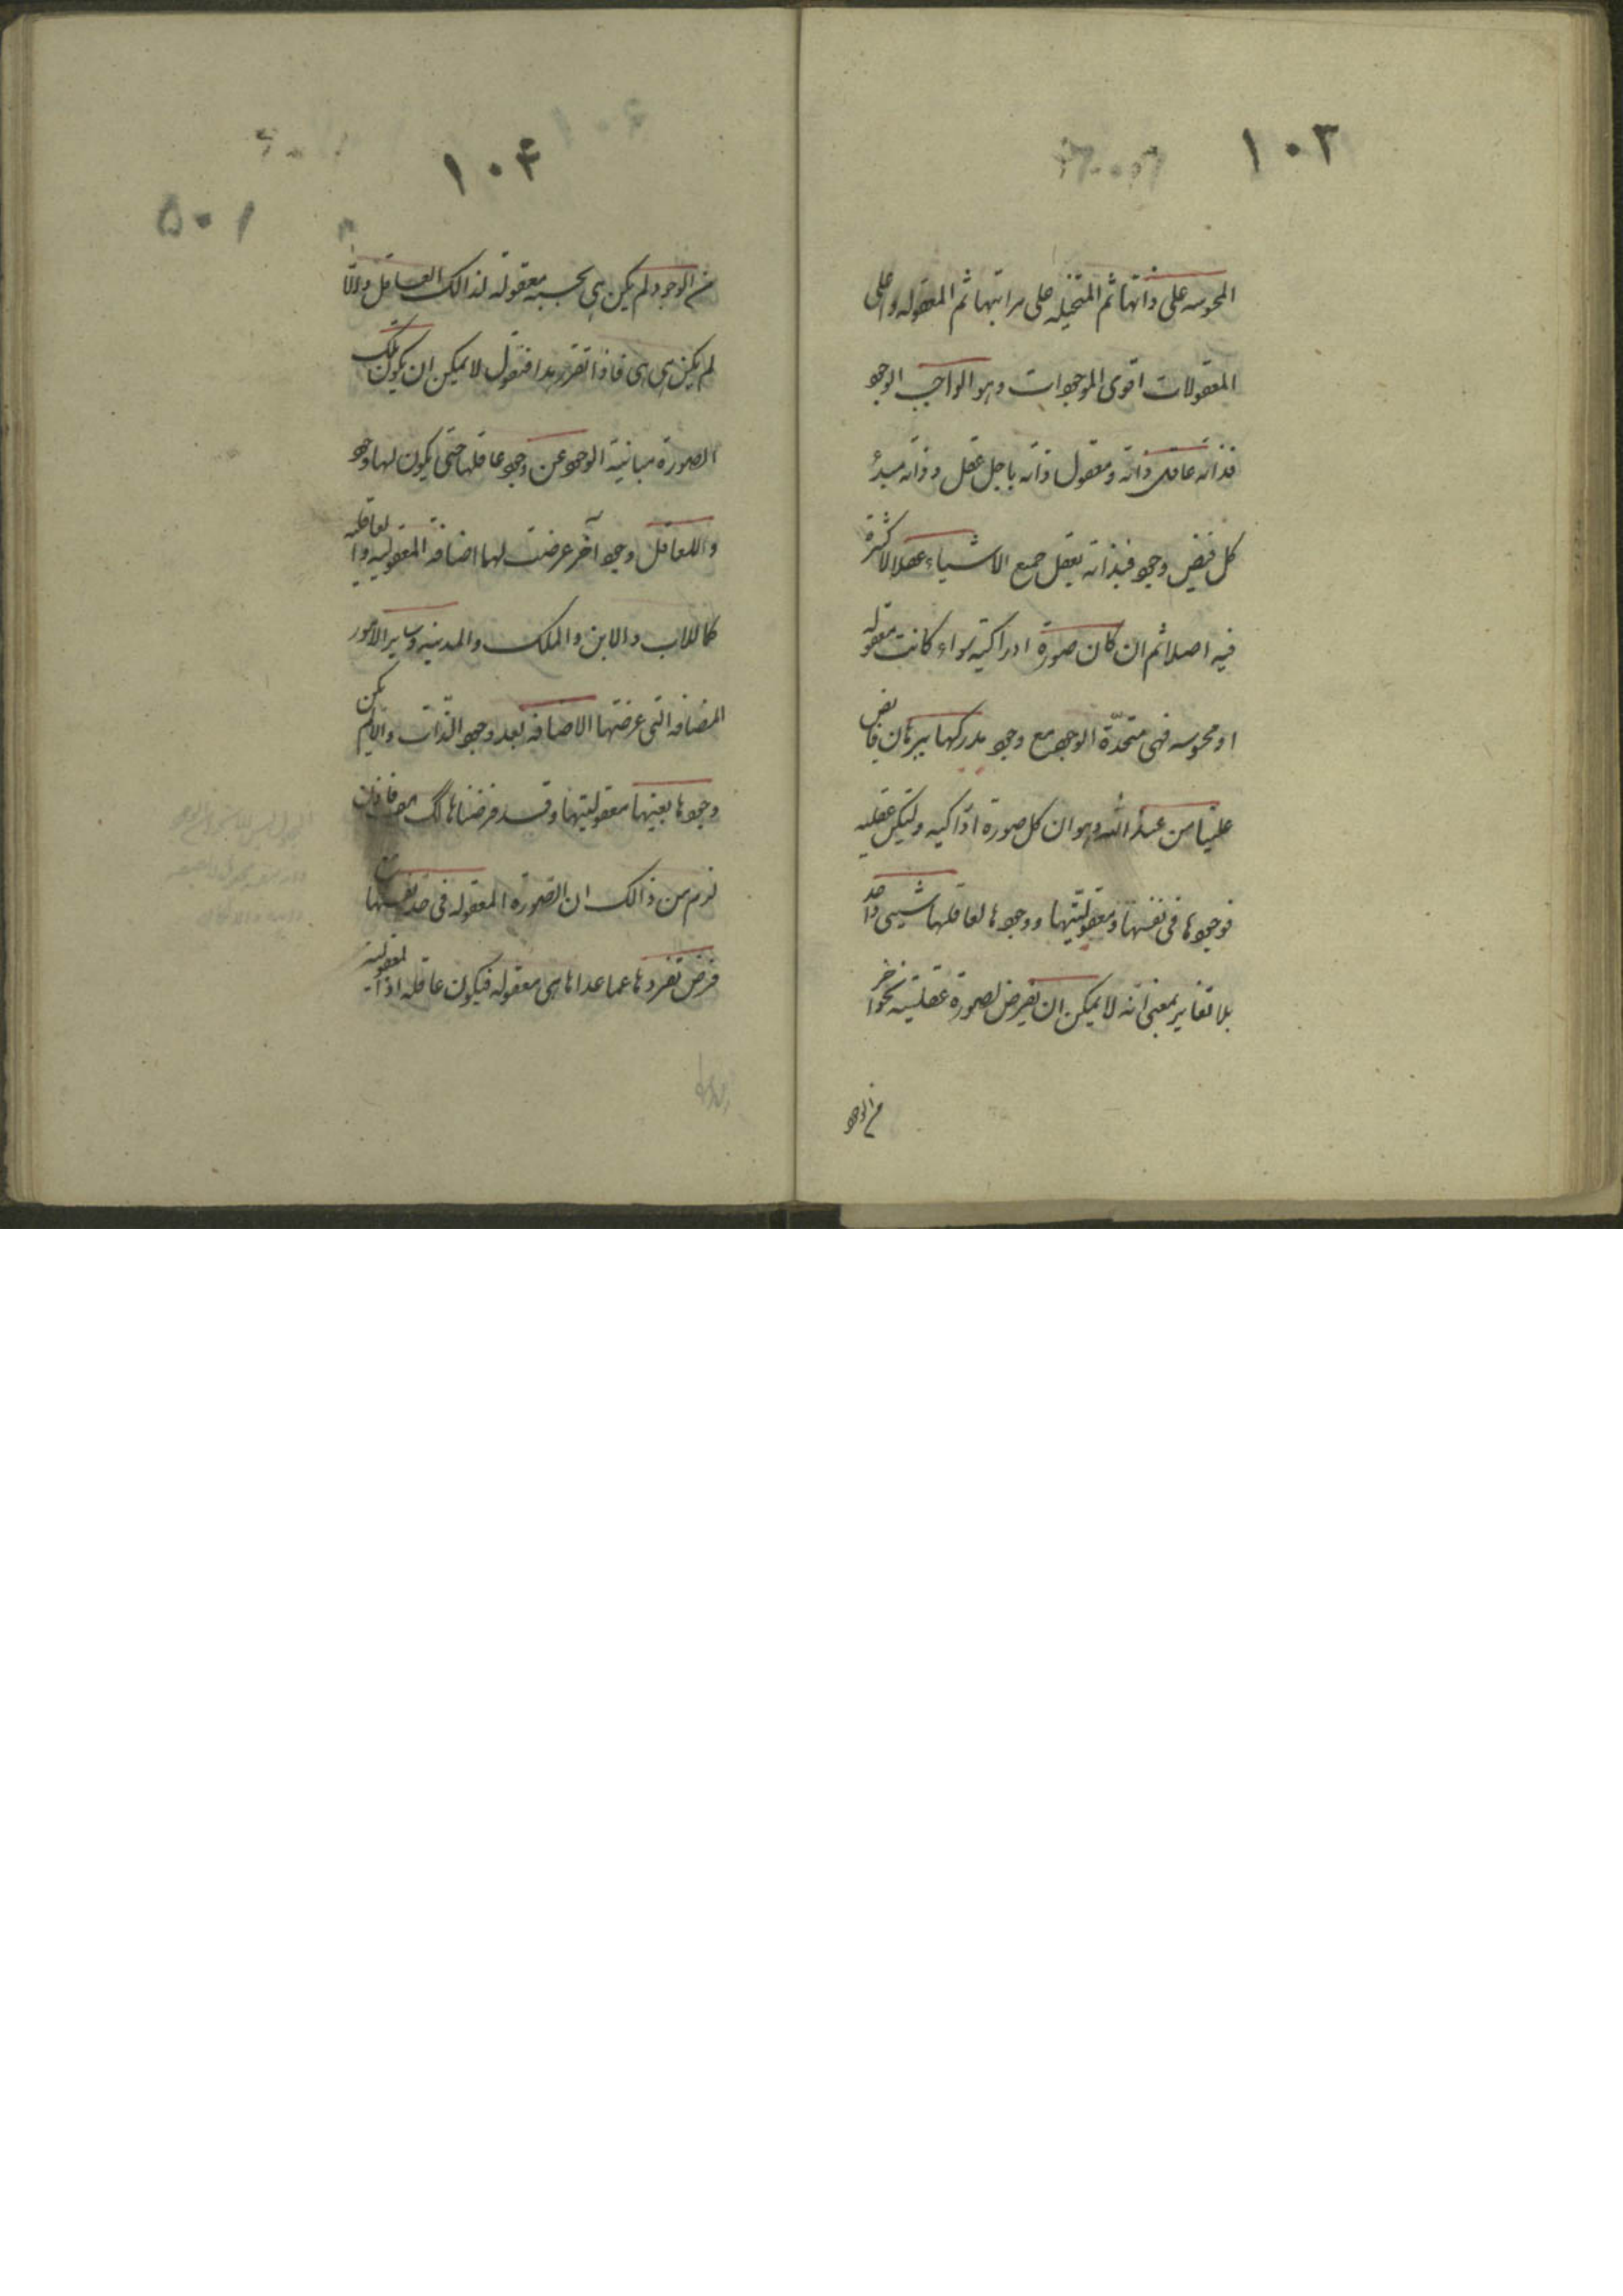 ١٠٣
المحسوسه على ذاتها ثم المتخيله على مراتبها ثم المعقوله واعلى
المعقولات اقوى الموجودات وهو الواجب الوجود
فذاته عاقل ذاته ومعقول ذاته باجل عقل وذاته مبدء
كل فيض وجود فبذاته يعقل جميع الاشياء عقلا لا كثرة
فيه اصلا ثم ان كان صورة ادراكية سواء كانت معقوله
او محسوسه فهى متحدّة الوجود مع وجود مدركها ببرهان فايض
علينا من عند الله وهو ان كل صورة ادراكيه ولتكن عقليه
فوجودها فى نفسها ومعقوليتها ووجودها لعاقلها شيىء واحد
بلا تغاير بمعنى انه لا يمكن ان يفرض لصورة عقلية نحوا آخر
من الوجود
١٠۴
من الوجود ولم يكن هى بحسبه معقولة لذالك العاقل والا
لم يكن هى هى فاذا تقرر هذا فنقول لا يمكن ان يكون تلك
الصورة مباينية الوجود عن وجود عاقلها حتى يكون لها وجود
وللعاقل وجود آخر عرضت لها اضافة المعقوليه والعاقليه
كما للاب والابن والملك والمدينه وساير الامور
المضافه التى عرضتها الاضافه بعد وجود الذّات والا لم يكن
وجودها بعينها معقوليتها وقد فرضناها كك هف فاذن
لزم من ذالك ان الصّورة المعقوله فى حد نفسها
فرض تفردها عما عداها هى معقوله فيكون عاقله اذا المعقوليه
١٠۵